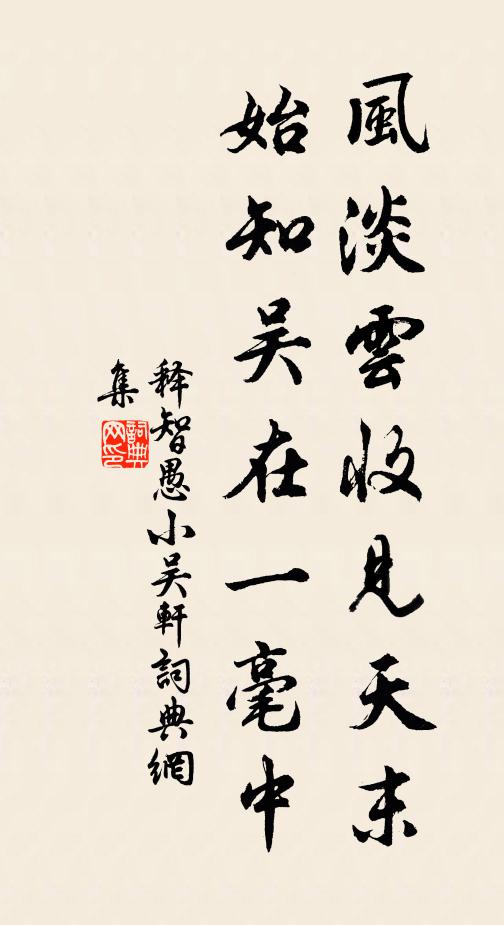 風淡雲收見天末
始知吴在一毫中
释智愚小吴軒詞典網
集
詞典网印